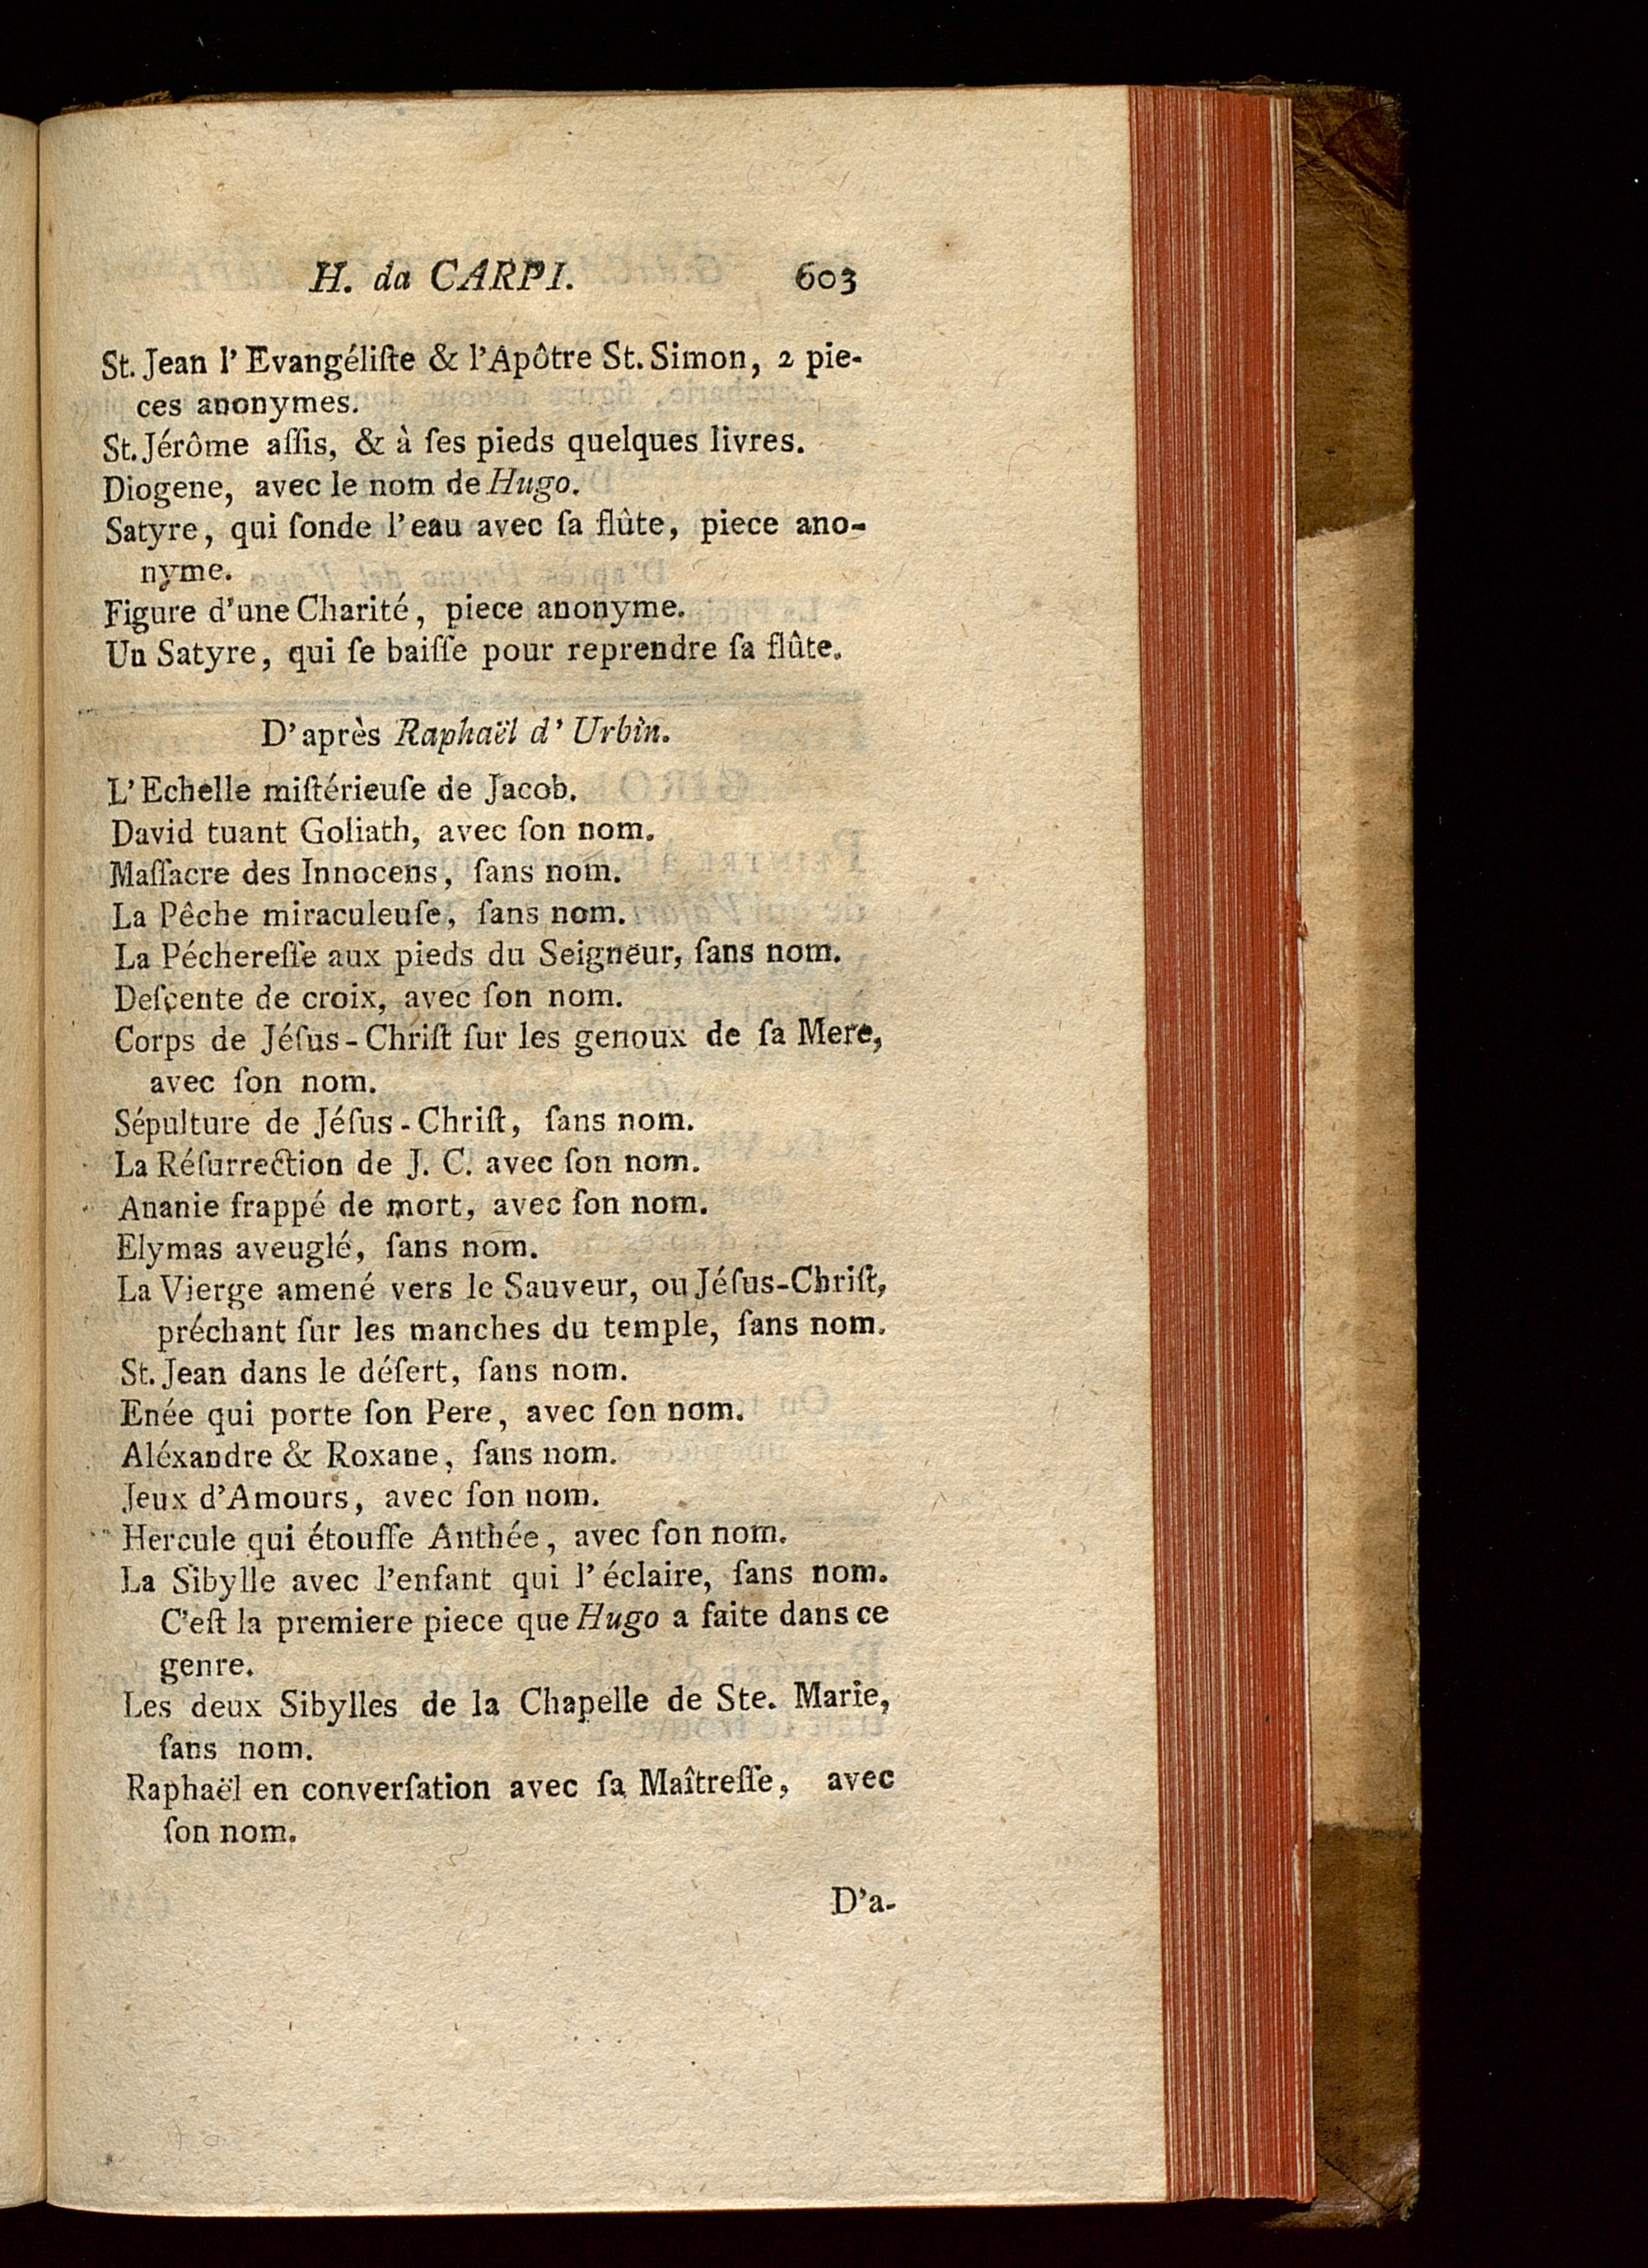 H. da CARPI. 603
St. Jean l'Evangéliſte & l'Apôtre St. Simon, 2 pie-
ces anonymes.
St. Jérôme aſſis, & à ſes pieds quelques livres.
Diogene, avec le nom de Hugo.
Satyre, qui ſonde l'eau avec ſa flûte, piece ano-
nyme.
Figure d'une Charité, piece anonyme.
Un Satyre, qui ſe baiſſe pour reprendre ſa flûte.
D'après Raphaël d'Urbin.
L'Echelle miſtérieuſe de Jacob.
David tuant Goliath, avec ſon nom.
Maſſacre des Innocens, ſans nom.
La Pêche miraculeuſe, ſans nom.
La Péchereſſe aux pieds du Seigneur, ſans nom.
Deſcente de croix, avec ſon nom.
Corps de Jéſus-Chriſt ſur les genoux de ſa Mere,
avec ſon nom.
Sépulture de Jéſus-Chriſt, ſans nom.
La Réſurrection de J. C. avec ſon nom.
Ananie frappé de mort, avec ſon nom.
Elymas aveuglé, ſans nom.
La Vierge amené vers le Sauveur, ou Jéſus-Chriſt,
préchant ſur les manches du temple, ſans nom.
St. Jean dans le déſert, ſans nom.
Enée qui porte ſon Pere, avec ſon nom.
Aléxandre & Roxane, ſans nom.
Jeux d'Amours, avec ſon nom.
Hercule qui étouffe Anthée, avec ſon nom.
La Sibylle avec l'enfant qui l'éclaire, ſans nom.
C'eſt la premiere piece que Hugo a faite dans ce
genre.
Les deux Sibylles de la Chapelle de Ste. Marie,
ſans nom.
Raphaël en converſation avec ſa Maîtreſſe, avec
ſon nom.
D'a-